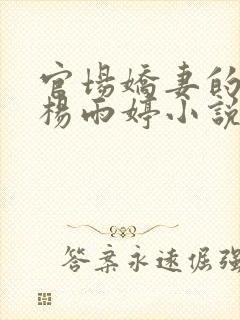 官場嬌妻的
楊雨婷小說
答案永遠倔強